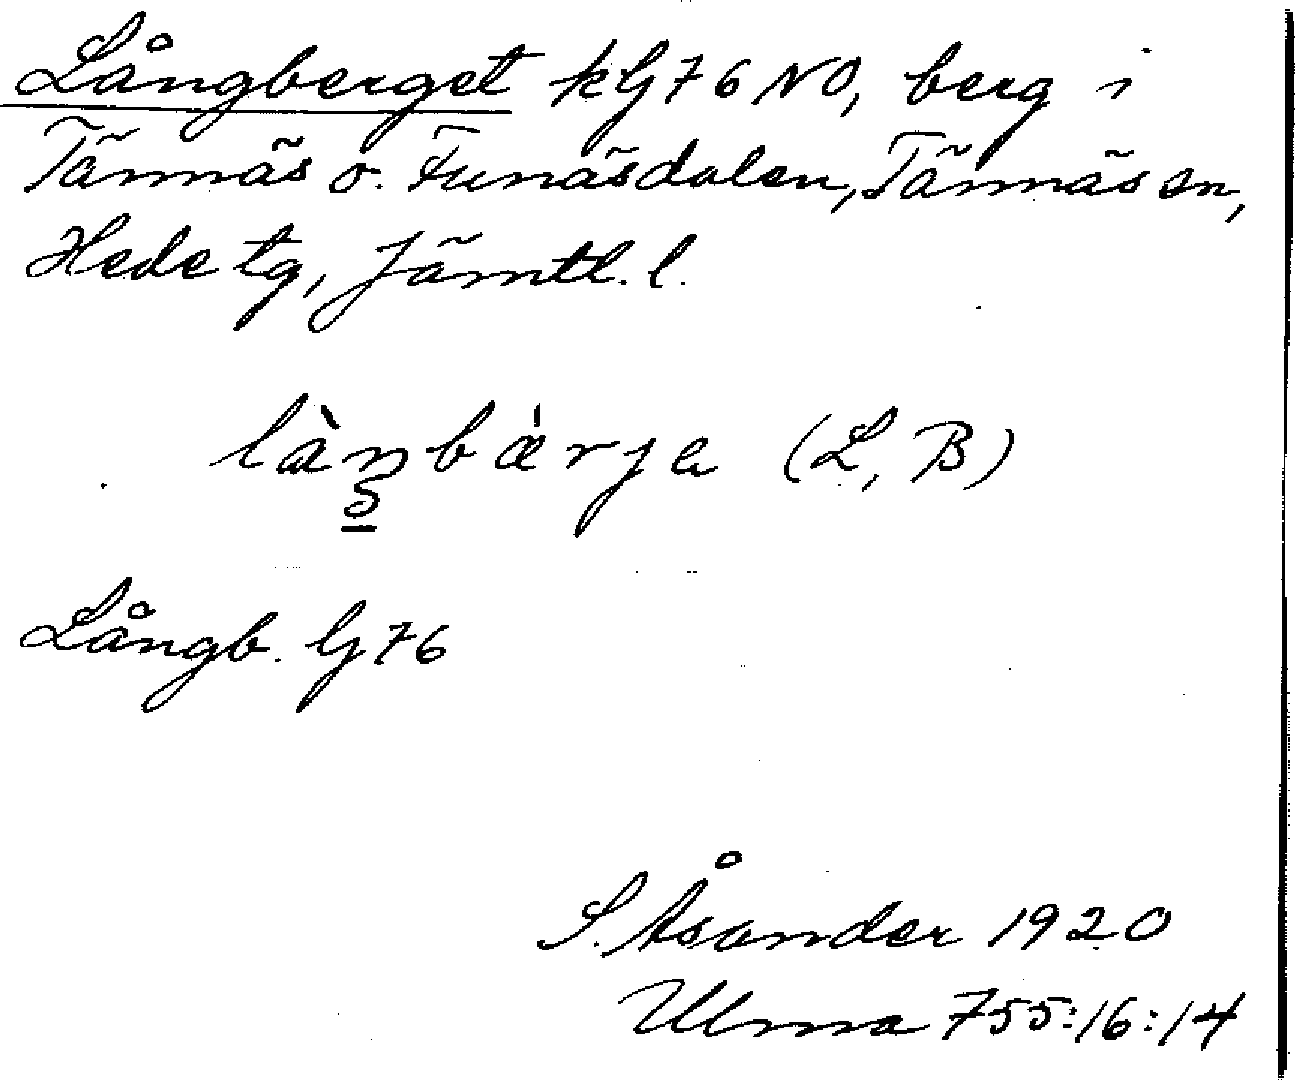 Långberget kG76NO, berg i
Tännäs o. Funäsdalen, Tännäs sn,
Hede tg, Jämtl. l.
(L, B)
Långb. G76
S. Åsander 1920
Ulma 755:16:14